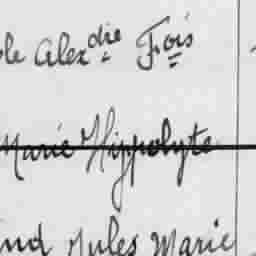 le Alexdie Fois
Marie Hippolyte
and Jules Marie